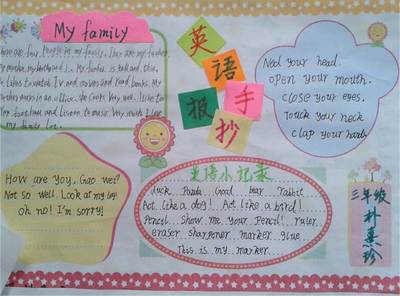 My family
There are four People in my family. They are my father
my mother, my brother and I. My father is tall and thin,
He likes to watch TV and movies and read books. My
mother works in an office. She cooks very well. I like to
and listen to music. Very much I like
my family too.
英语
手抄报
Nod your head.
open your mouth.
close your eyes.
Touch your neck
clap your hands
How are you, Gao wei?
Not so well. Look at my leg!
Oh no! I'm sorry!
英语小记录
duck Panda Good bear rabbit
Act like a dog! Act like a bird!
Pencil Show me your Pencil! ruler
eraser sharpener marker glue
This is my marker.
三年级